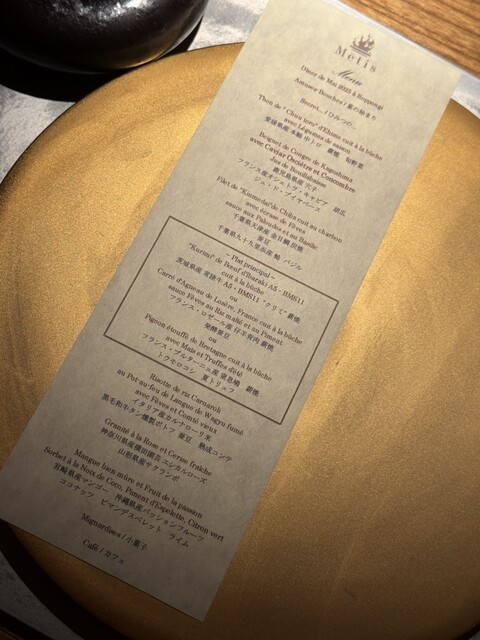 Metis
Menu
Dîner de Mai 2025 à Roppongi
Amuses-Bouches / 夏の始まり
Secret... / ひみつの…
Thon de "Chuu toro" d'Ehime cuit à la bûche
avec Légumes de saison
愛媛県産 本鮪 中トロ 薪焼 旬野菜
Beignet de Congre de Kagoshima
avec Caviar Osciètre et Concombre
Jus de Bouillabaisse
鹿児島県産 穴子
フランス産オシェトラ・キャビア 胡瓜
ジュ・ド・ブイヤベース
Filet de "Kinmedai" de Chiba cuit au charbon
avec écrasé de Fèves
sauce aux Palourdes et au Basilic
千葉県天津産 金目鯛 炭焼
蚕豆
千葉県九十九里浜産 蛤 バジル
~ Plat principal ~
"Kurimi" de Bœuf d'Ibaraki A5 - BMS11
cuit à la bûche
茨城県産 常陸牛 A5 - BMS11 "クリミ" 薪焼
ou
Carré d'Agneau de Lozère, France cuit à la bûche
sauce Fèves au Riz malté et au Piment
フランス・ロゼール産 仔羊骨肉 薪焼
発酵蚕豆
ou
Pigeon étouffé de Bretagne cuit à la bûche
avec Maïs et Truffes d'été
フランス・ブルターニュ産 窒息鳩 薪焼
トウモロコシ 夏トリュフ
Risotto de riz Carnaroli
au Pot-au-feu de Langue de Wagyu fumé
avec Fèves et Comté vieux
イタリア産カルナローリ米
黒毛和牛タン燻製ポトフ 蚕豆 熟成コンテ
Granité à la Rose et Cerise fraîche
神奈川県産横田園芸 エシカルローズ
山形県産サクランボ
Mangue bien mûre et Fruit de la passion
Sorbet à la Noix de Coco, Piment d'Espelette, Citron vert
宮崎県産マンゴー 沖縄県産パッションフルーツ
ココナッツ ピマンデスペレット ライム
Mignardises / 小菓子
Café / カフェ